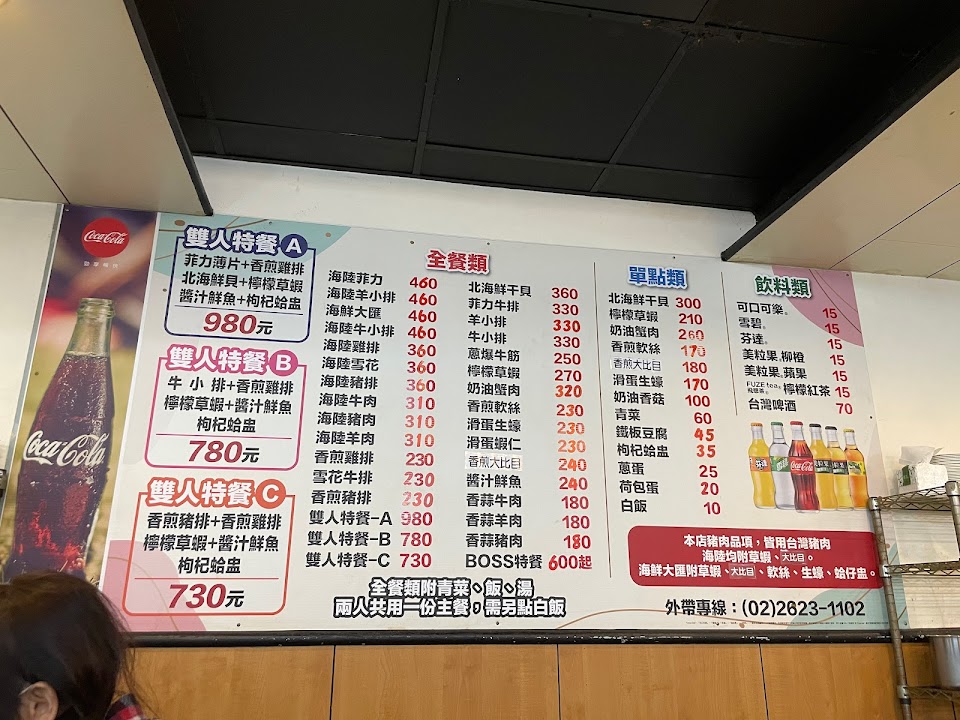 Coca-Cola
Coca-Cola
雙人特餐 A
菲力薄片+香煎雞排
北海鮮貝+檸檬草蝦
醬汁鮮魚+枸杞蛤盅
980元
雙人特餐 B
牛小排+香煎雞排
檸檬草蝦+醬汁鮮魚
枸杞蛤盅
780元
雙人特餐 C
香煎豬排+香煎雞排
檸檬草蝦+醬汁鮮魚
枸杞蛤盅
730元
全餐類
海陸菲力 460
海陸羊小排 460
海鮮大匯 460
海陸牛小排 460
海陸雞排 360
海陸雪花 360
海陸豬排 360
海陸牛肉 310
海陸豬肉 310
海陸羊肉 310
香煎雞排 230
雪花牛排 230
香煎豬排 230
雙人特餐-A 980
雙人特餐-B 780
雙人特餐-C 730
北海鮮干貝 360
菲力牛排 330
羊小排 330
牛小排 330
蔥爆牛筋 250
檸檬草蝦 270
奶油蟹肉 320
香煎軟絲 230
滑蛋生蠔 230
滑蛋蝦仁 230
香煎大比目 240
醬汁鮮魚 240
香蒜牛肉 180
香蒜羊肉 180
香蒜豬肉 180
BOSS特餐 600起
全餐類附青菜、飯、湯
兩人共用一份主餐，需另點白飯
單點類
北海鮮干貝 300
檸檬草蝦 210
奶油蟹肉 260
香煎軟絲 170
香煎大比目 180
滑蛋生蠔 170
奶油香菇 100
青菜 60
鐵板豆腐 45
枸杞蛤盅 35
蔥蛋 25
荷包蛋 20
白飯 10
飲料類
可口可樂® 15
雪碧® 15
芬達® 15
美粒果®柳橙 15
美粒果®蘋果 15
FUZE tea® 飛想茶® 檸檬紅茶 15
台灣啤酒 70
本店豬肉品項，皆用台灣豬肉
海陸均附草蝦、大比目。
海鮮大匯附草蝦、大比目、軟絲、生蠔、蛤仔盅。
外帶專線：(02)2623-1102